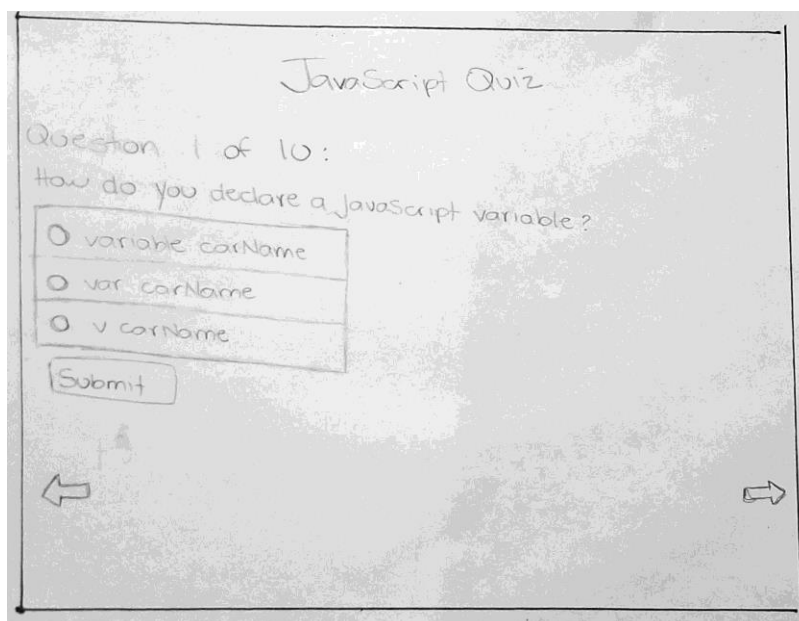 JavaScript Quiz
Question 1 of 10:
How do you declare a JavaScript variable?
variable carName
var carName
v carName
Submit